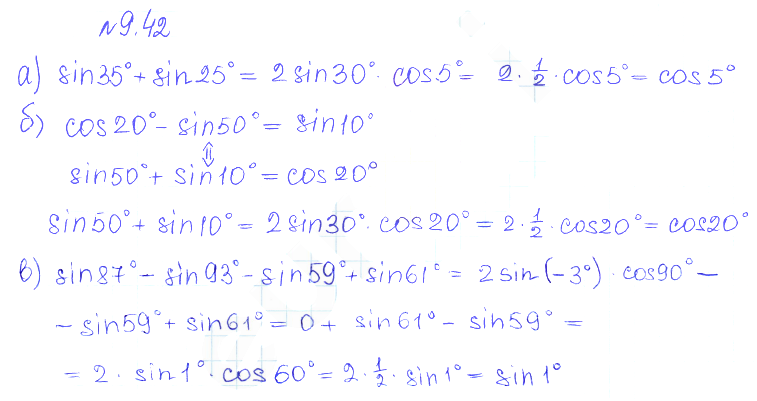 №9.42
а) sin35°+sin25°= 2sin30°·cos5°= 2·1/2·cos5°= cos5°
б) cos20°-sin50°= sin10°
⇕
sin50°+ sin10°= cos20°
sin50°+ sin10°= 2sin30°·cos20°= 2·1/2·cos20°= cos20°
в) sin87°- sin93°-sin59°+sin61°= 2sin(-3°)·cos90°-
- sin59°+ sin61°= 0+ sin61°- sin59°=
= 2· sin1°·cos60°= 2·1/2·sin1°= sin1°